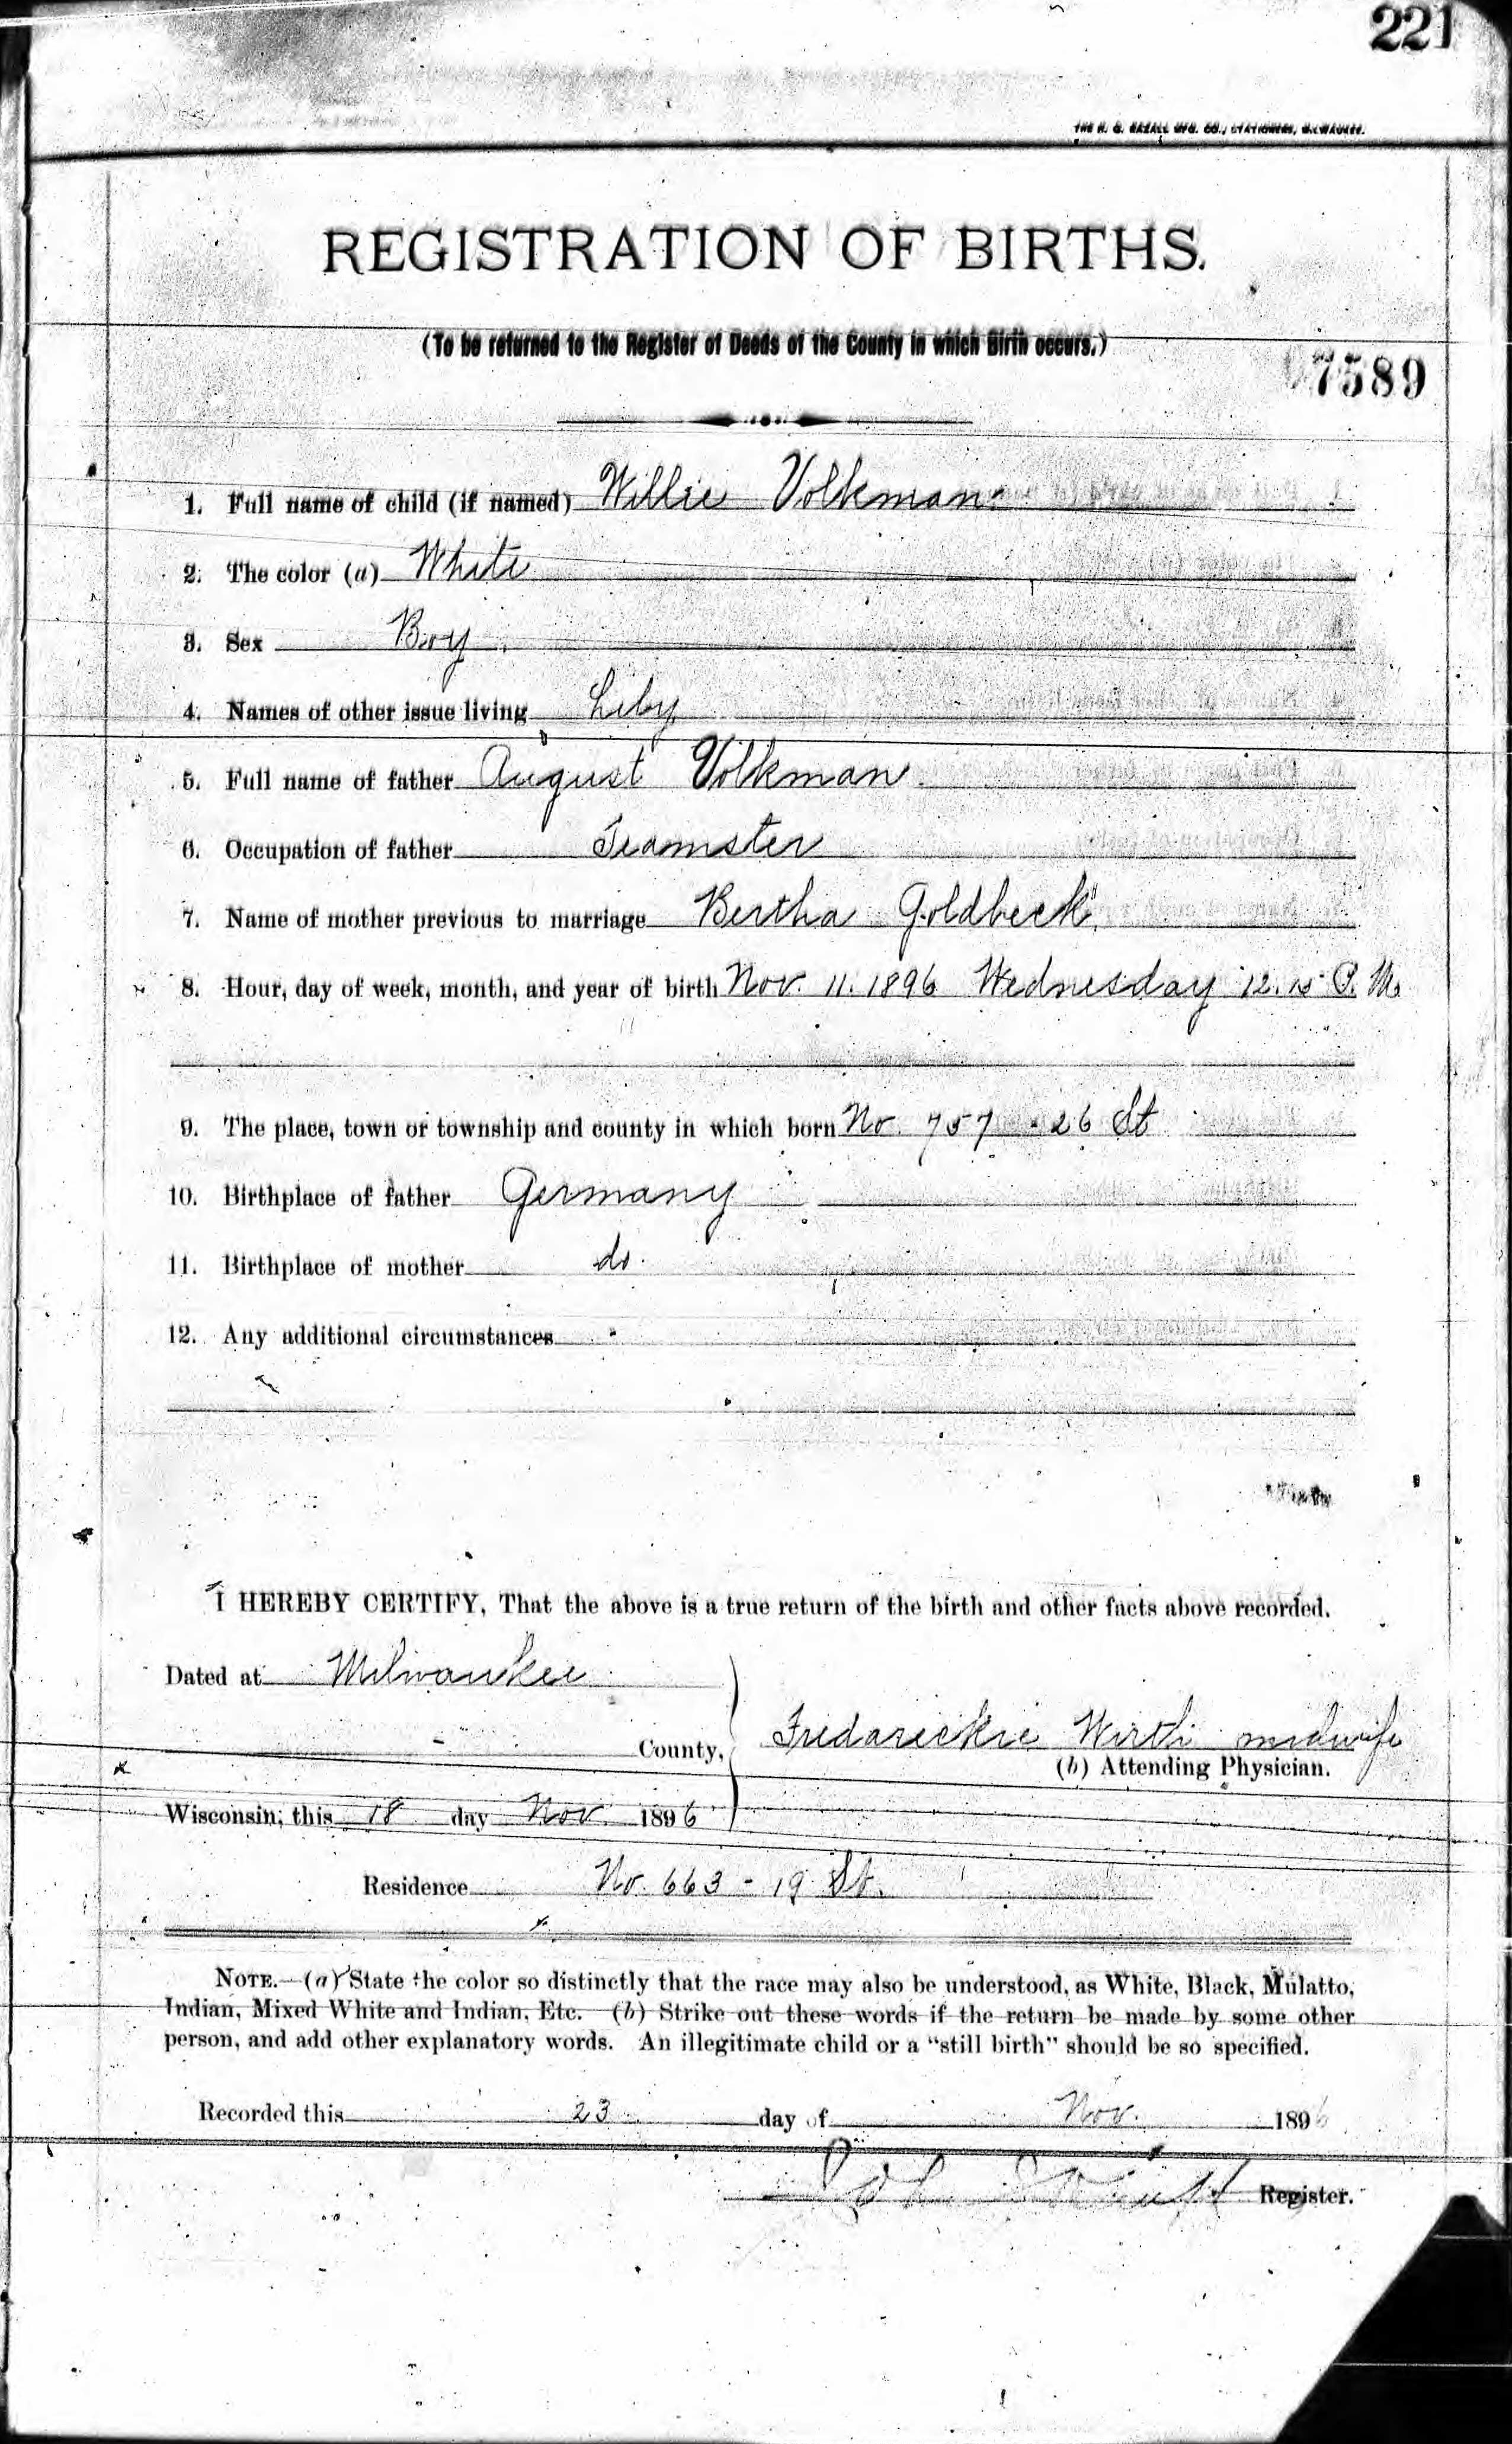 221
THE H. G. RAZALL MFG. CO., STATIONERS, MILWAUKEE.
REGISTRATION OF BIRTHS.
(To be returned to the Register of Deeds of the County in which Birth occurs.)
7589
1. Full name of child (if named) Willie Volkman
2. The color (a) White
3. Sex Boy
4. Names of other issue living Liby
5. Full name of father August Volkman
6. Occupation of father Teamster
7. Name of mother previous to marriage Bertha Goldbeck
8. Hour, day of week, month, and year of birth Nov. 11. 1896 Wednesday 12. 15 P. M.
9. The place, town or township and county in which born No. 757 - 26 St
10. Birthplace of father Germany
11. Birthplace of mother do.
12. Any additional circumstances
I HEREBY CERTIFY, That the above is a true return of the birth and other facts above recorded.
Dated at Milwaukee
County, Fredareckie Wirth midwife
(b) Attending Physician.
Wisconsin, this 18 day Nov. 1896
Residence No. 663 - 19 St.
NOTE.—(a) State the color so distinctly that the race may also be understood, as White, Black, Mulatto,
Indian, Mixed White and Indian, Etc. (b) Strike out these words if the return be made by some other
person, and add other explanatory words. An illegitimate child or a "still birth" should be so specified.
Recorded this 23 day of Nov. 1896
Register.